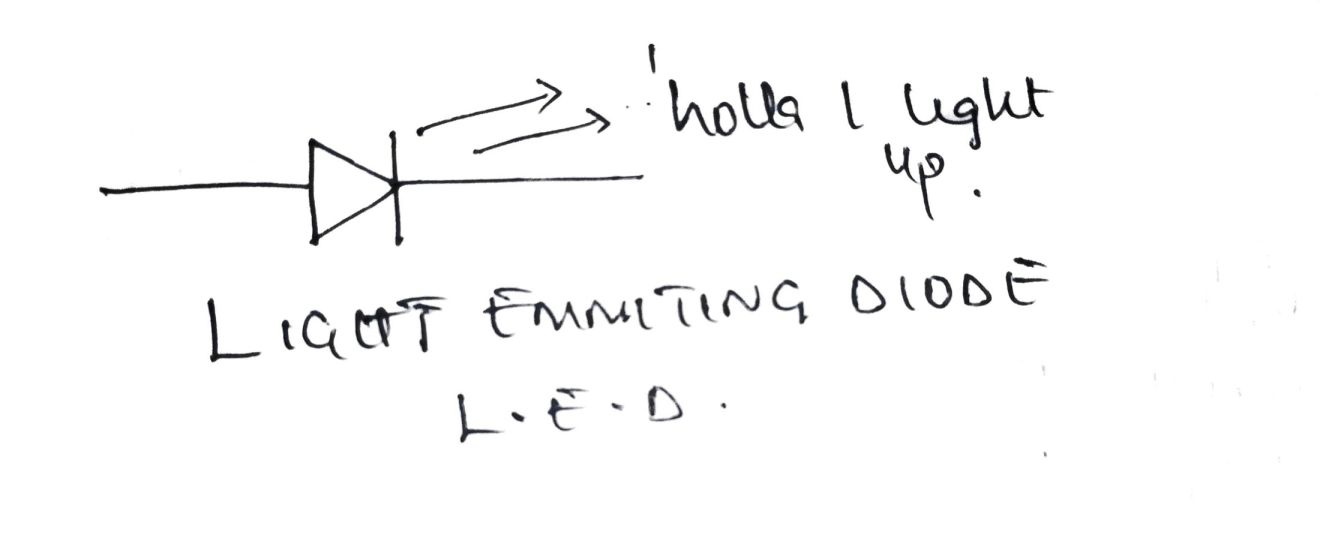 holla I light
up.
LIGHT EMMITING DIODE
L.E.D.